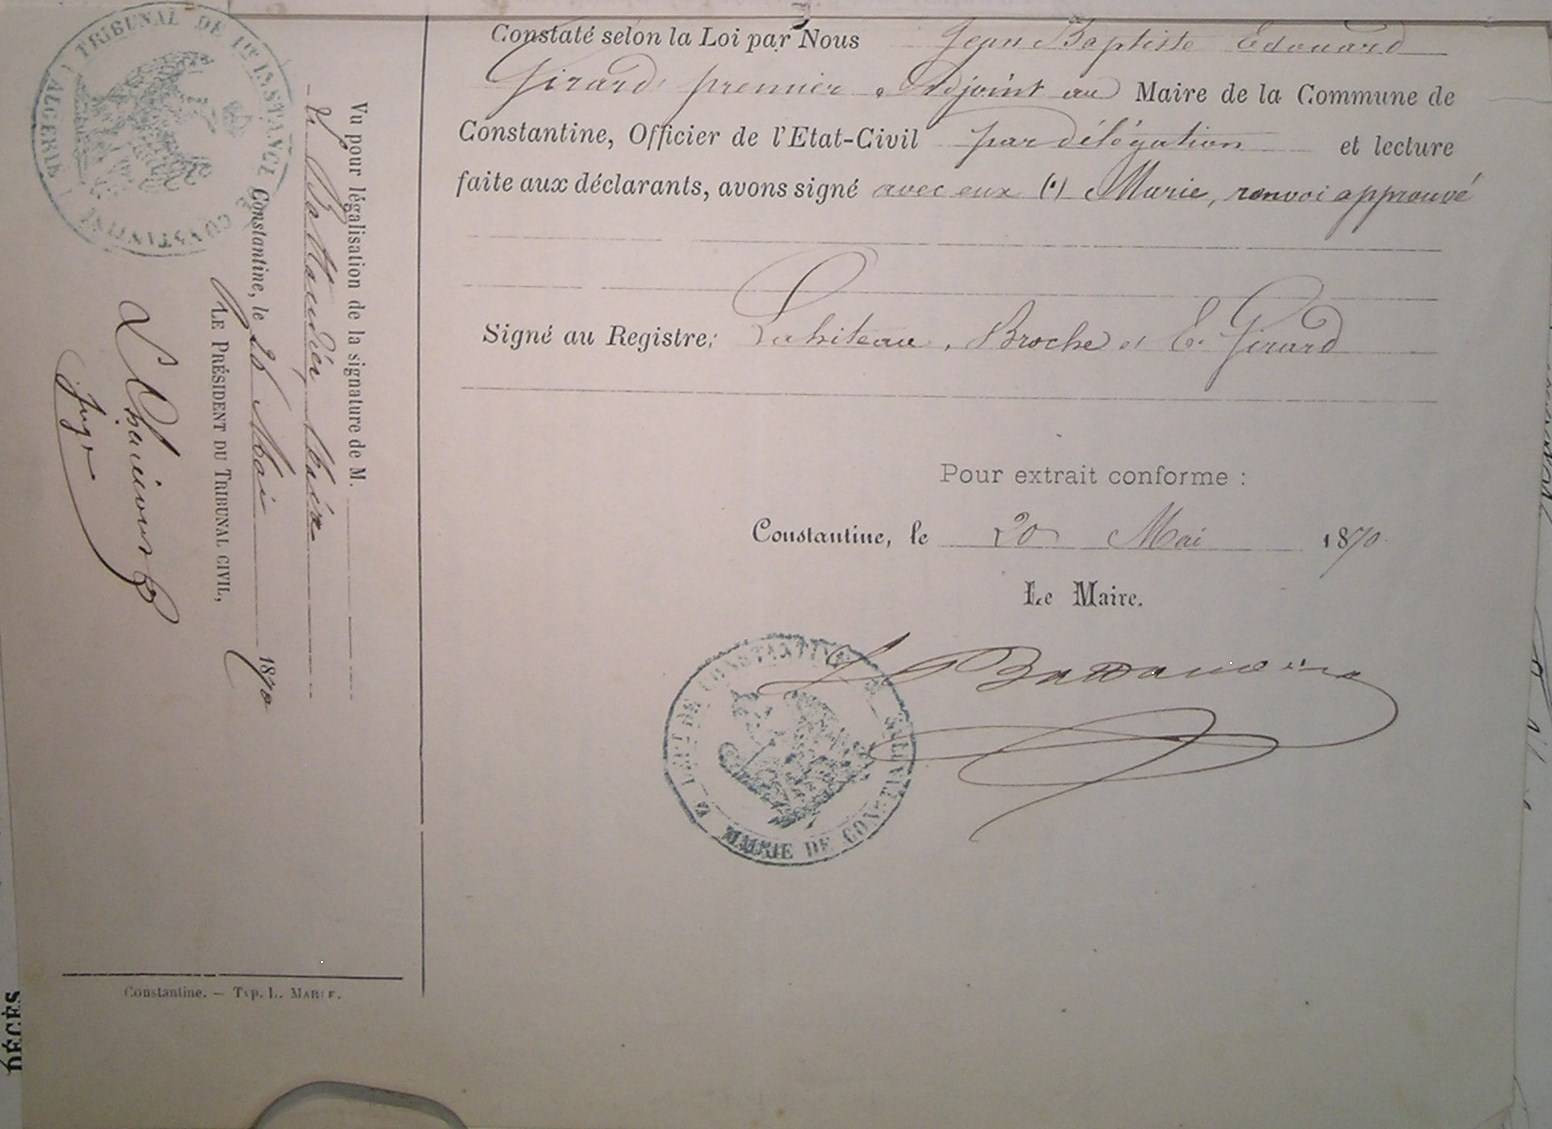 Constaté selon la Loi par Nous Jean Baptiste Edouard
Girard premier Adjoint au Maire de la Commune de
Constantine, Officier de l'Etat-Civil par délégation et lecture
faite aux déclarants, avons signé avec eux (1) Marie, renvoi approuvé
Signé au Registre: Lahiteau, Broche et E. Girard
Pour extrait conforme :
Constantine, le 20 Mai 1870
Le Maire.
DEPT DE CONSTANTINE
MAIRIE DE CONSTANTINE
Vu pour légalisation de la signature de M.
de Battandier, Maire
Constantine, le 25 Mai 1870
LE PRÉSIDENT DU TRIBUNAL CIVIL,
Juge
TRIBUNAL DE 1re INSTANCE DE CONSTANTINE
(ALGERIE)
Constantine. — Typ. L. MARLE.
DÉCÈS